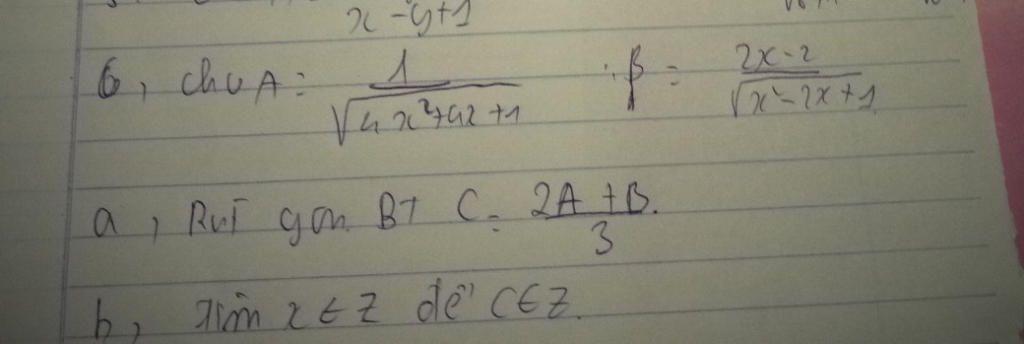 x - y + 1
6, cho A = 1/√(4x²+4x+1) ; B = (2x-2)/√(x²-2x+1)
a, Rút gọn BT C = (2A+B)/3.
b, Tìm x ∈ Z để C ∈ Z.